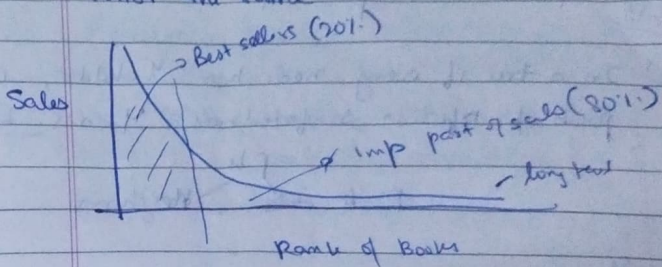 Best sellers (20%)
Sales
imp part of sales (80%)
long
Rank of Books